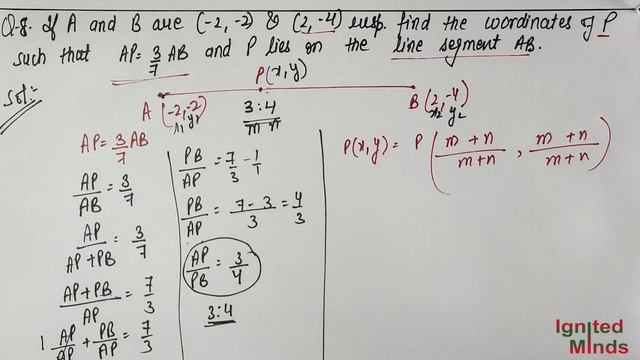 Q.8. If A and B are (-2,-2) & (2,-4) resp. find the coordinates of P
such that AP = 3/7 AB and P lies on the line segment AB.
Sol:-
P(x,y)
A (-2,-2) 3:4 B (2,-4)
x₁ y₁ m n x₂ y₂
AP = 3/7 AB
AP/AB = 3/7
AP/AP+PB = 3/7
AP+PB/AP = 7/3
1 AP/AP + PB/AP = 7/3
PB/AP = 7/3 - 1/1
PB/AP = 7-3/3 = 4/3
AP/PB = 3/4
3:4
P(x,y) = P (m + n/m+n , m + n/m+n)
Ignited
Minds